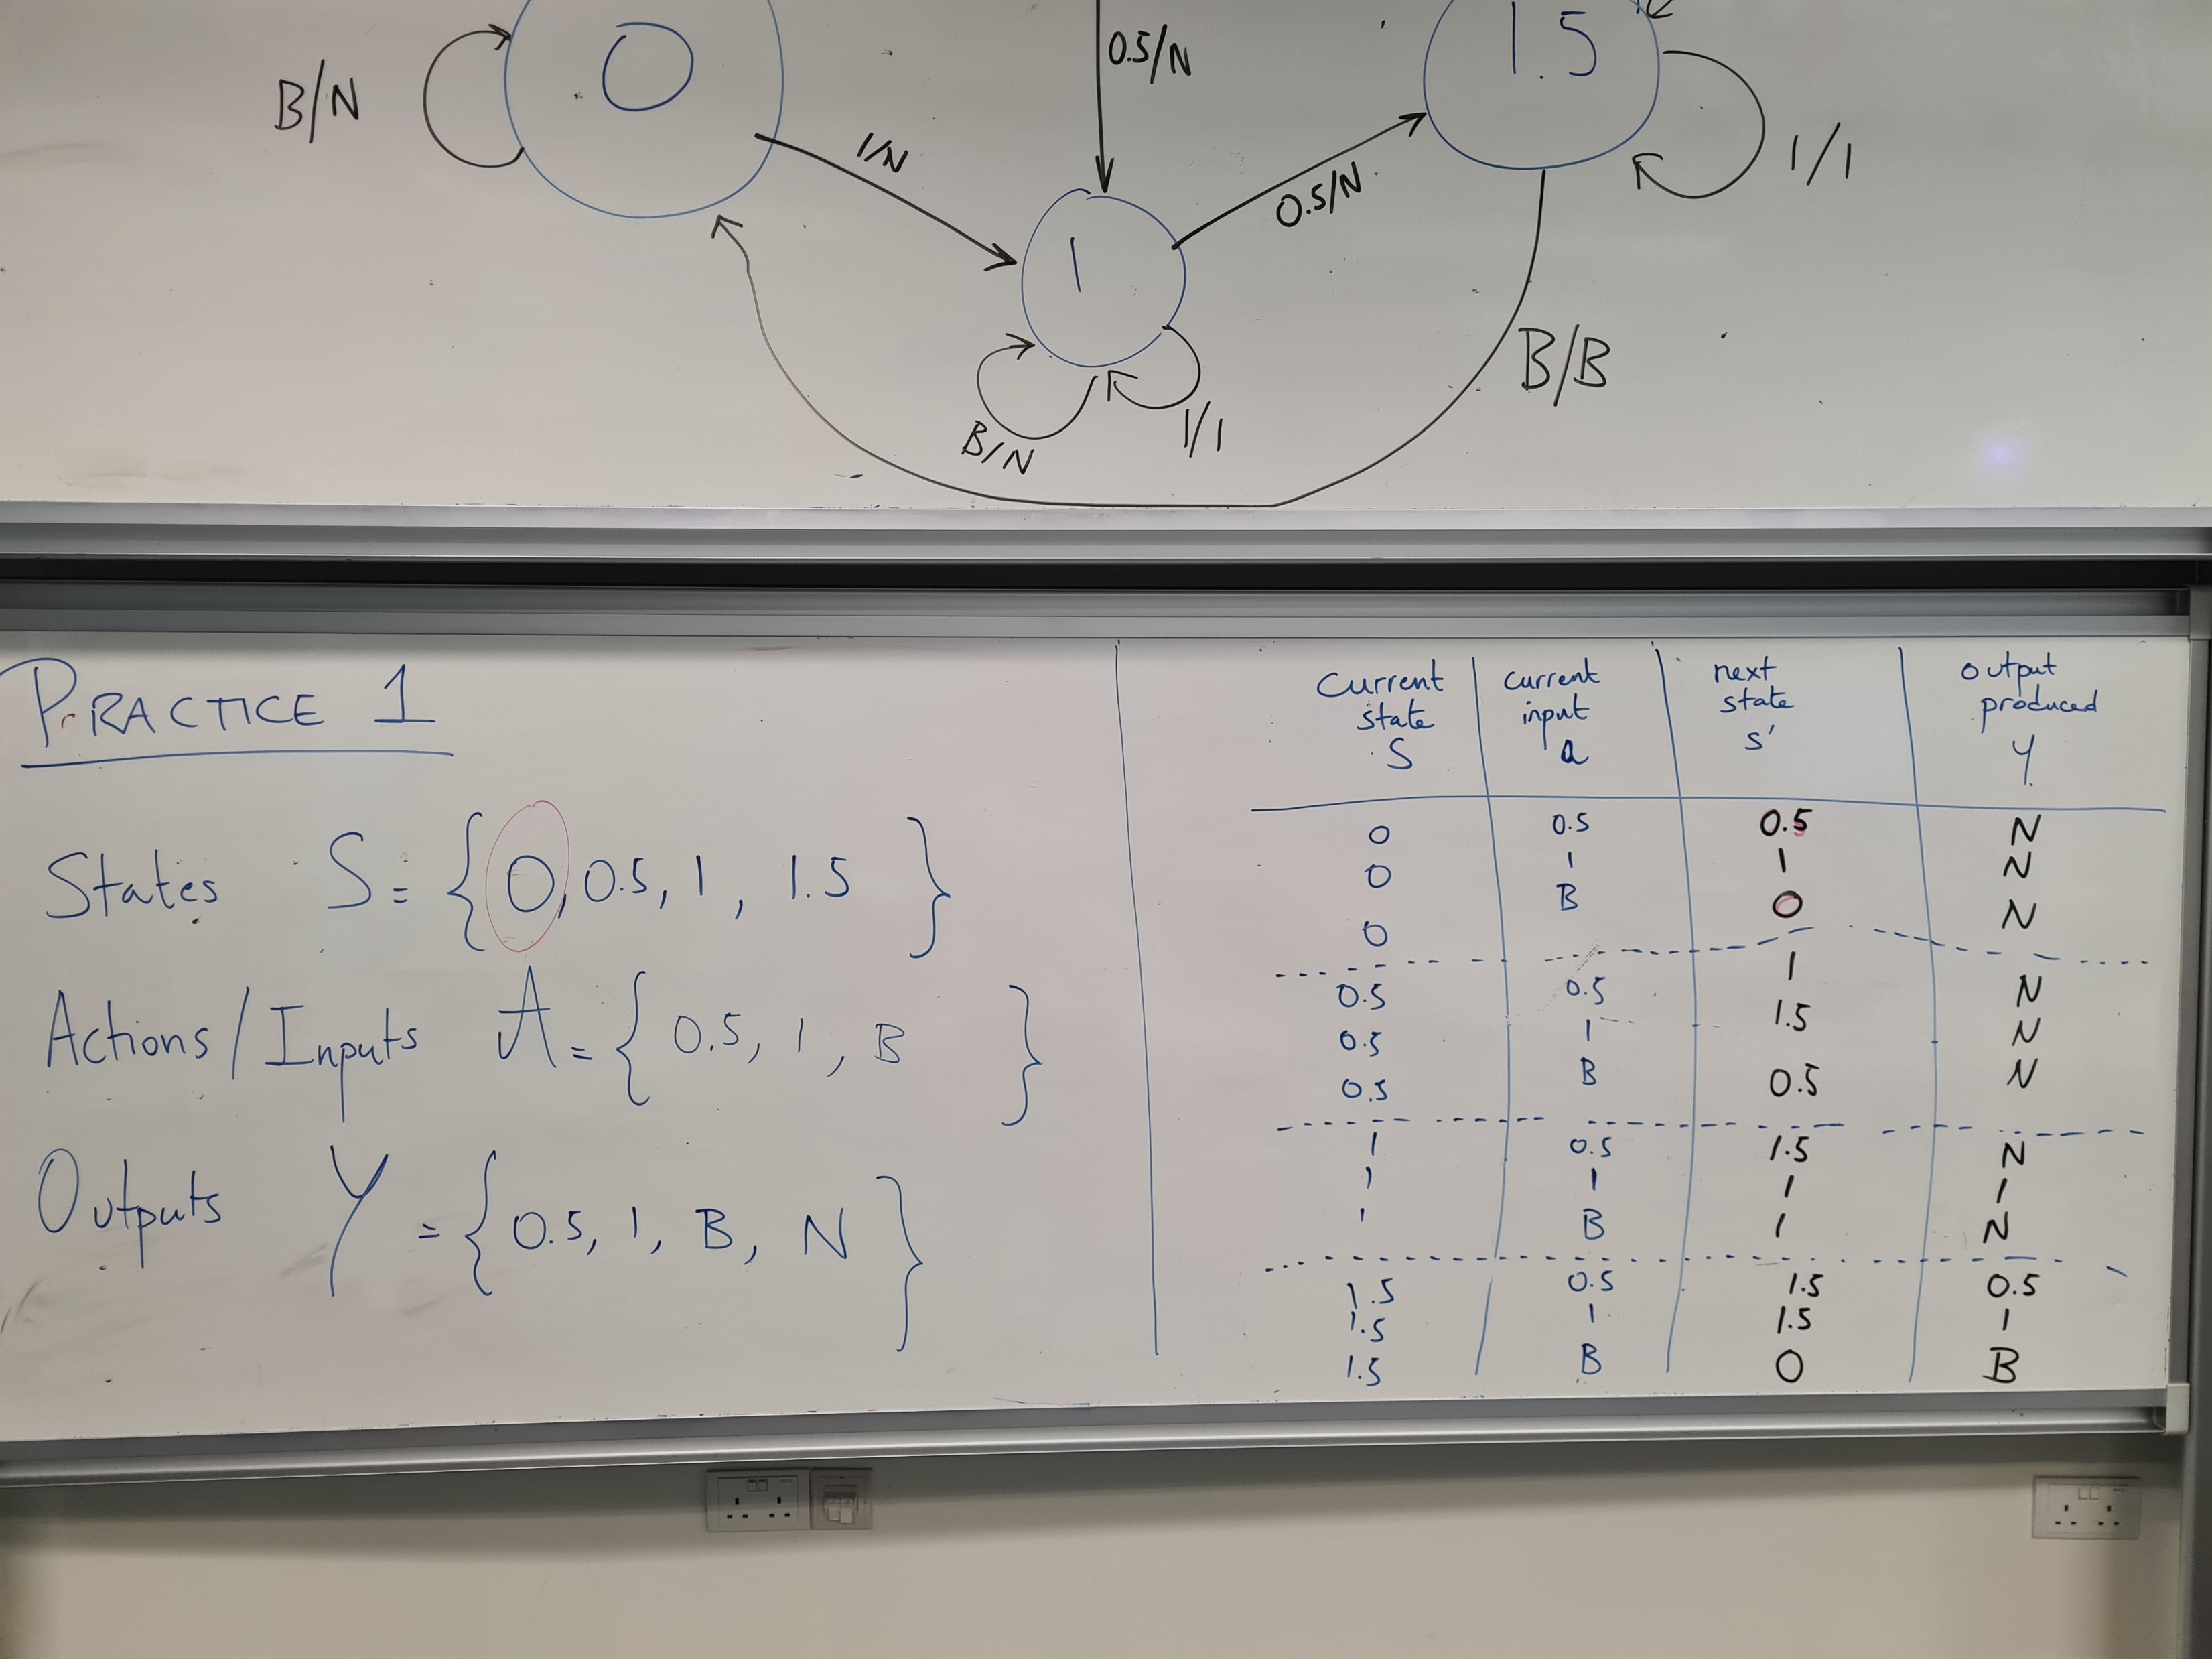 0
1.5
0.5/N
B/N
1/N
0.5/N
1/1
1
B/B
B/N
1/1
PRACTICE 1
States S = { 0, 0.5, 1, 1.5 }
Actions/Inputs A = { 0.5, 1, B }
Outputs Y = { 0.5, 1, B, N }
current state S | current input a | next state s' | output produced y
0 | 0.5 | 0.5 | N
0 | 1 | 1 | N
0 | B | 0 | N
0.5 | 0.5 | 1 | N
0.5 | 1 | 1.5 | N
0.5 | B | 0.5 | N
1 | 0.5 | 1.5 | N
1 | 1 | 1 | 1
1 | B | 1 | N
1.5 | 0.5 | 1.5 | 0.5
1.5 | 1 | 1.5 | 1
1.5 | B | 0 | B